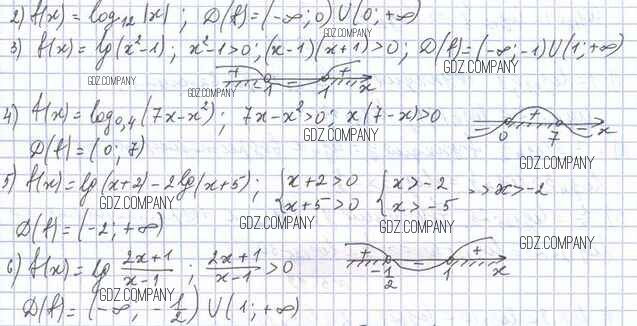 2) f(x) = log₁₂|x| ; D(f) = (-∞; 0) U (0; +∞)
3) f(x) = lg(x²-1) ; x²-1>0; (x-1)(x+1)>0; D(f) = (-∞; -1) U (1; +∞)
GDZ.COMPANY GDZ.COMPANY GDZ.COMPANY
+ -1 - 1 + x
4) f(x) = log₀,₄(7x-x²) ; 7x-x²>0; x(7-x)>0
GDZ.COMPANY
- 0 + 7 - x
D(f) = (0; 7)
GDZ.COMPANY
5) f(x) = lg(x+2) - 2lg(x+5) ; { x+2>0 { x>-2 => x>-2
x+5>0 x>-5
GDZ.COMPANY
D(f) = (-2; +∞)
GDZ.COMPANY GDZ.COMPANY
6) f(x) = lg (2x+1)/(x-1) ; (2x+1)/(x-1) > 0
+ -1/2 - 1 + x
GDZ.COMPANY
D(f) = (-∞; -1/2) U (1; +∞)